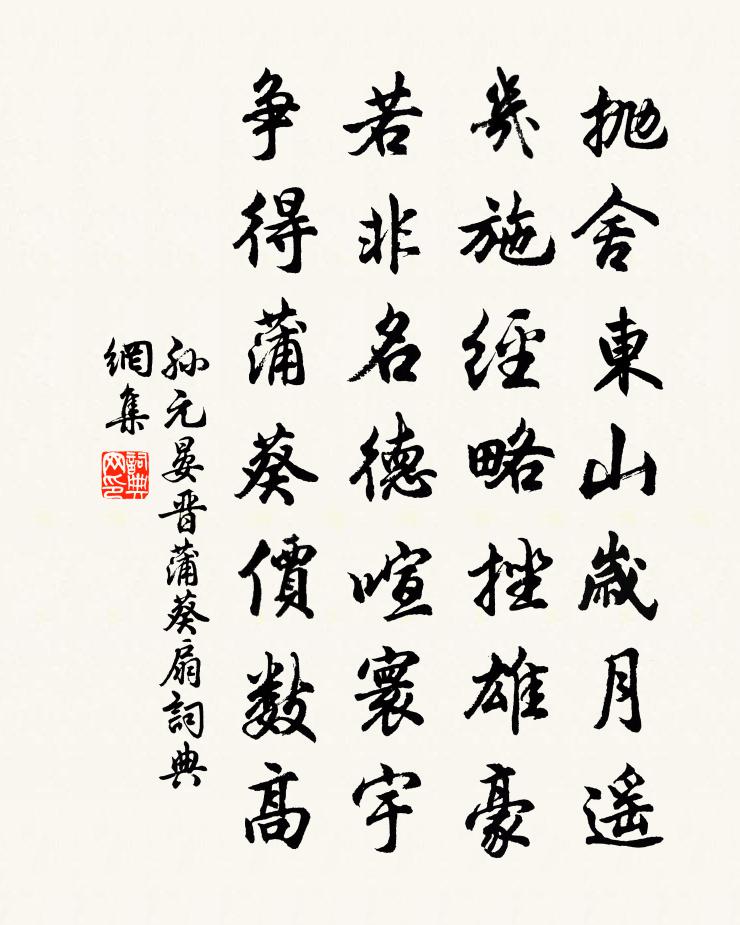 抛舍東山歲月遥
幾施經略挫雄豪
若非名德喧寰宇
争得蒲葵價數高
孫元晏晋蒲葵扇詞典
網集
詞典
网印